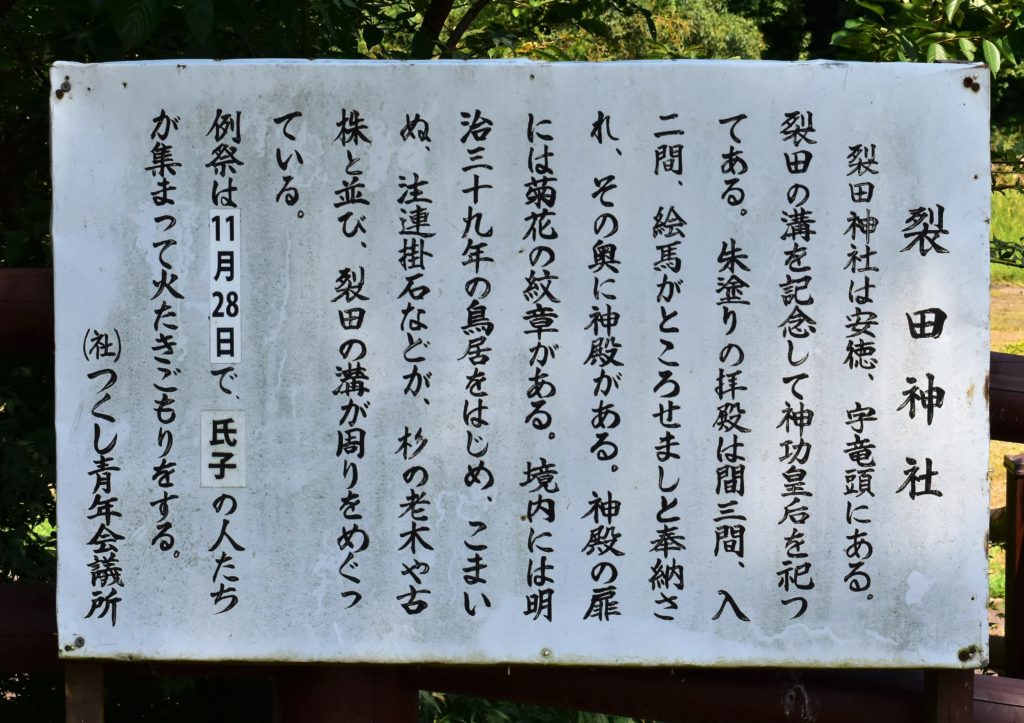 裂田神社
裂田神社は安徳、字竜頭にある。
裂田の溝を記念して神功皇后を祀っ
てある。朱塗りの拝殿は間三間、入
二間、絵馬がところせましと奉納さ
れ、その奥に神殿がある。神殿の扉
には菊花の紋章がある。境内には明
治三十九年の鳥居をはじめ、こまい
ぬ、注連掛石などが、杉の老木や古
株と並び、裂田の溝が周りをめぐっ
ている。
例祭は11月28日で、氏子の人たち
が集まって火たきごもりをする。
(社)つくし青年会議所